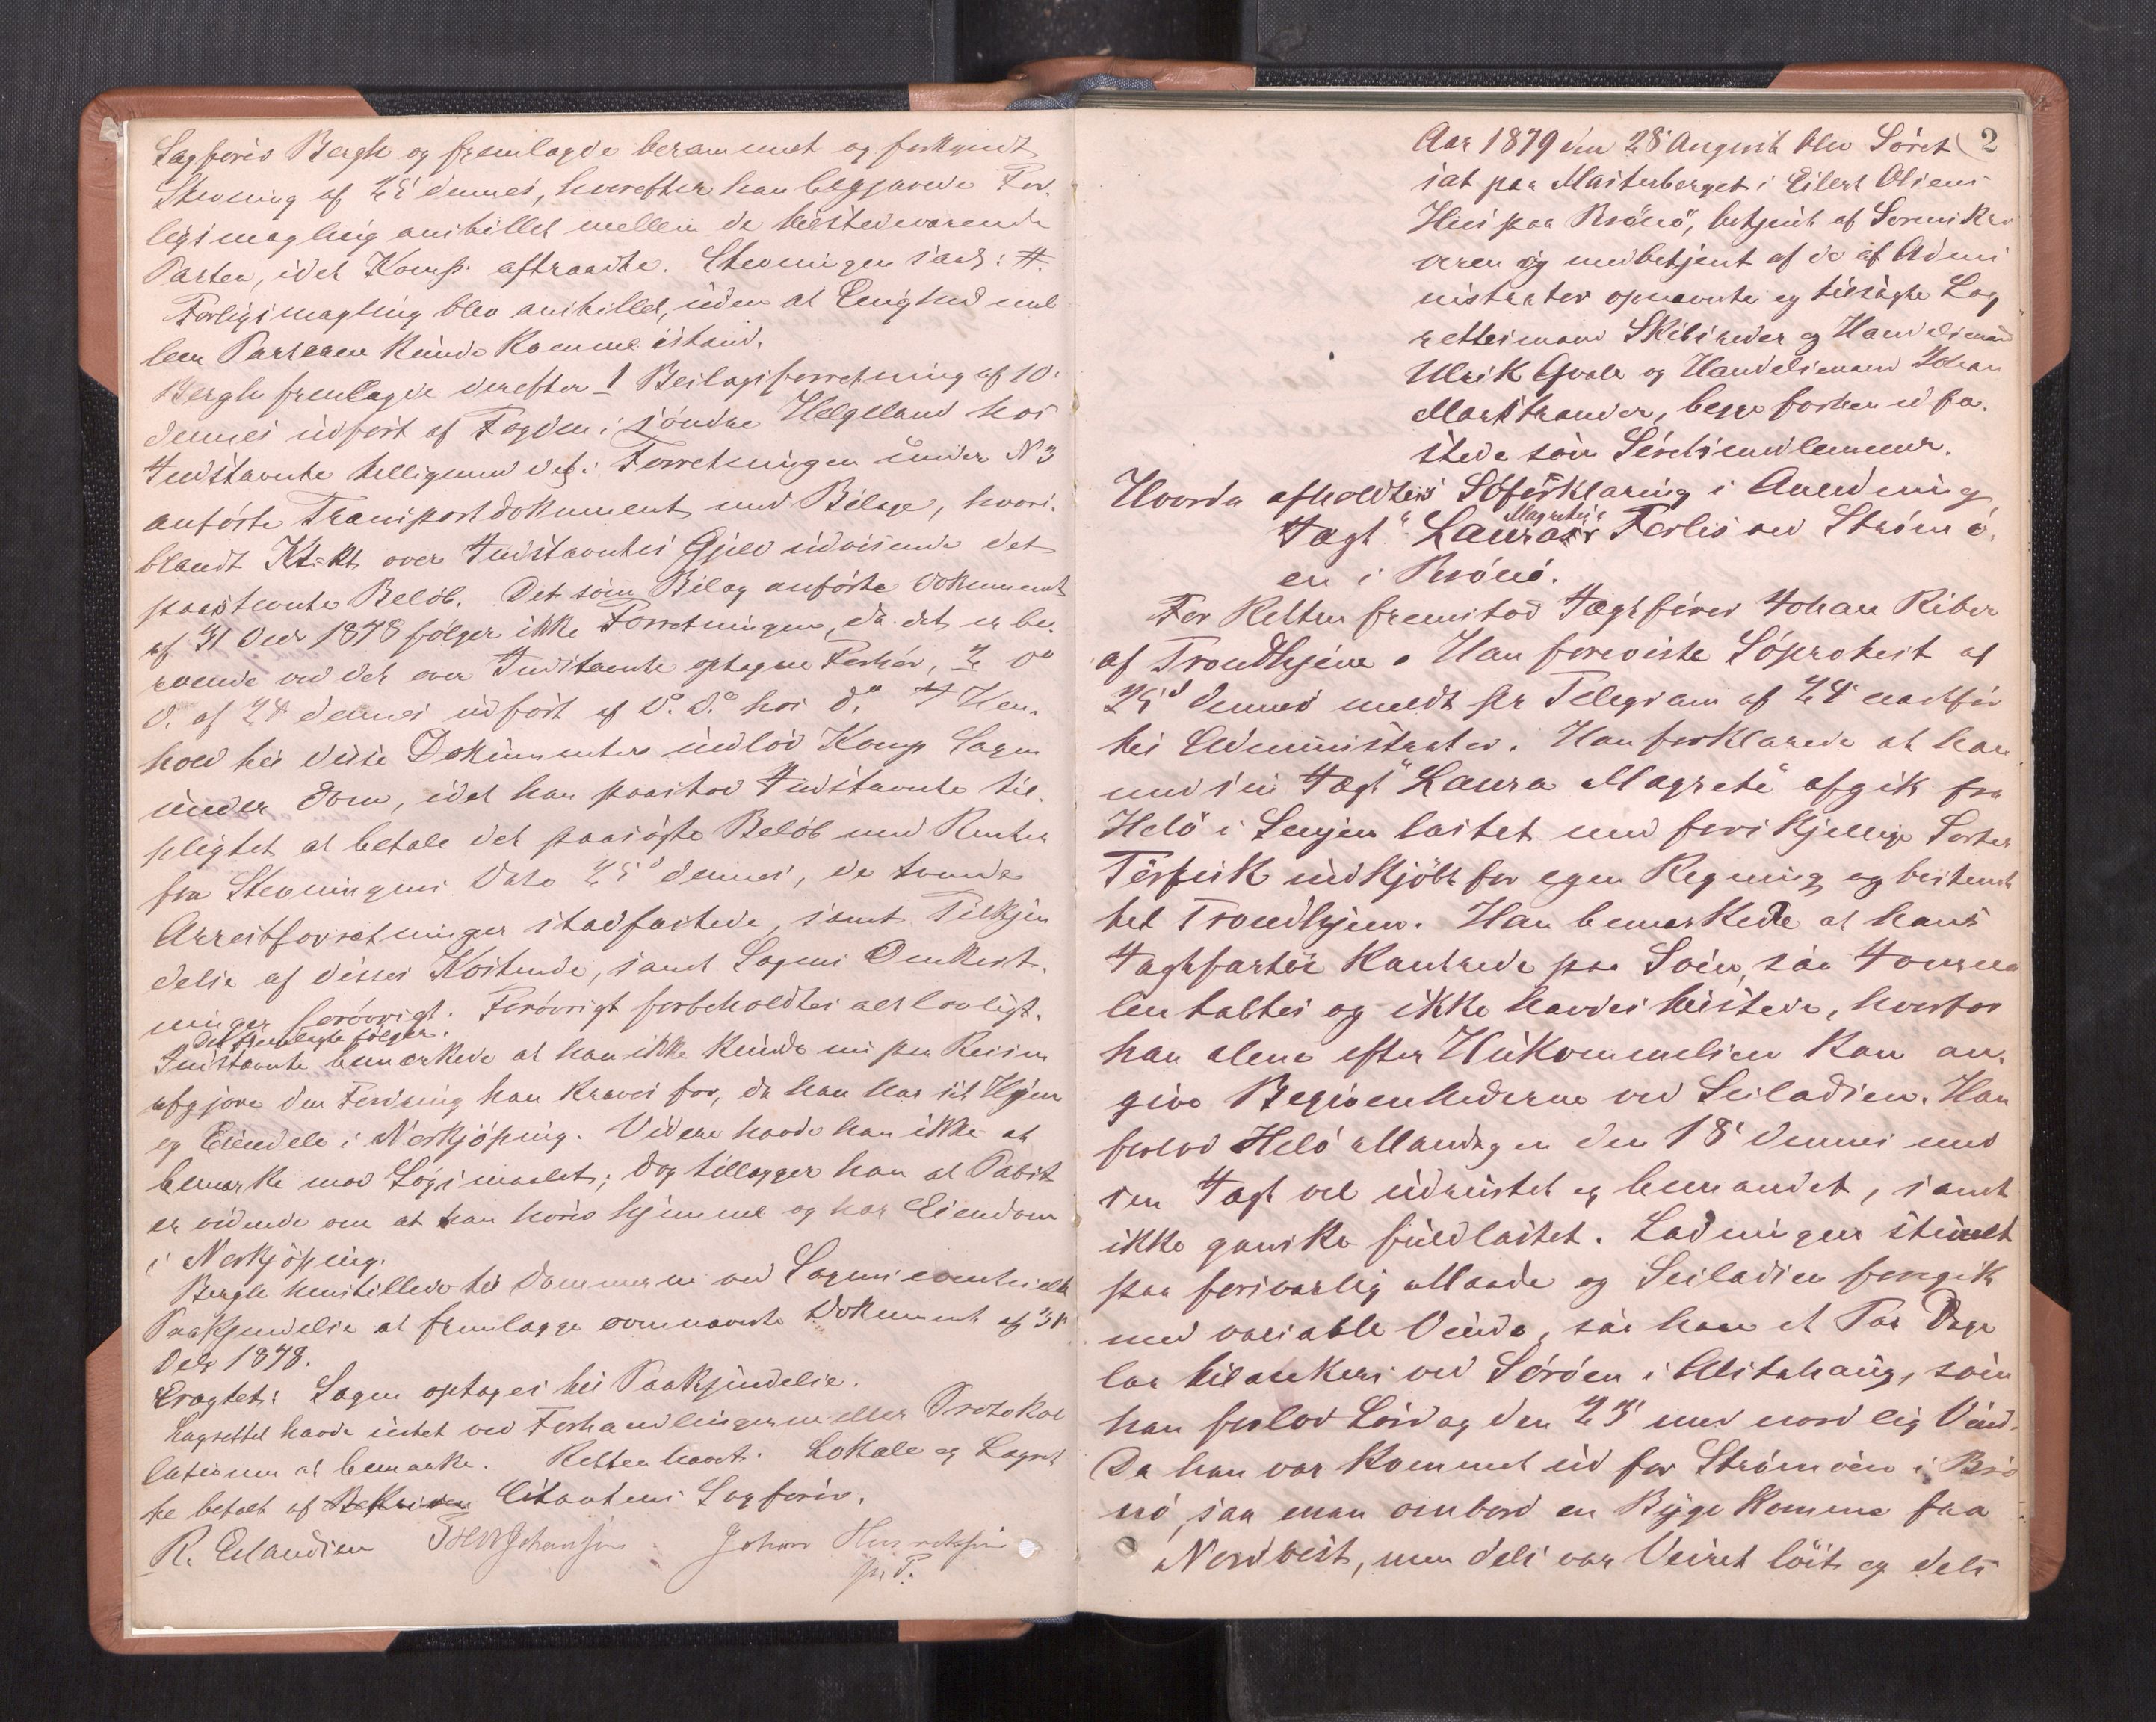 Sagfører Bergh og fremlagde berammet og forkyndt
Stevning af 25 dennes, hvorefter han begjærede For-
ligsmægling anstillet mellem de tilstedeværende
Parter, idet Komp. aftraadte. Stevningen lød: #.
Forligsmægling blev anstillet, uden at Enighed mel
lem Parterne kunde komme istand.
Bergh fremlagde derefter 1 Beslagsforretning af 10.
dennes udført af Fogden i søndre Helgeland hos
Indstævnte tilligemed det i Forretningen under N 3
anførte Transportdokument med Bilage, hvori-
blandt Kt. Kt. over Indstævntes Gjæld udvisende det
paastevnte Beløb. Det som Bilag anførte Dokument
af 31 Decbr 1878 følger ikke Forretningen, da det er be-
roende ved det over Indstævnte optagne Forhør, 2 do
d. af 24 dennes udført af do. do. hos do. I Hen-
hold til disse Dokumenter indlod Komp Sagen
under Dom, idet han paastod Indstævnte til-
pligtet at betale det paasøgte Beløb med Renter
fra Stevningens Dato 25d dennes, de tvende
Arrestforretninger stadfæstede, samt Tilkjen
delse af disses Kostende, samt Sagens Omkost-
ninger forøvrigt. Forøvrigt forbeholdtes alt lovligt.
Det fremlagte følger.
Indstævnte bemærkede at han ikke kunde nu paa Reisen
afgjøre den Fordring han kræves for, da han har sit Hjem
og Eiendele i Norkjøping. Videre havde han ikke at
bemærke mod Søgsmaalet; dog tillægger han at Pabst
er vidende om at han hører hjemme og har Eiendom
i Norkjøping.
Bergh henstillede til Dommeren ved Sagens eventuelle
Paakjendelse at fremlægge ovennævnte Dokument af 31
Decbr 1878.
Eragtet: Sagen optages til Paakjendelse.
Lagrettet havde intet ved Forhandlingerne eller Protokol
lationen at bemærke. Retten hævet. Lokale og Lagret
te betalt af Citantens Sagfører.
R. Erlandsen Johan Henriksen
m. P.
2
Aar 1879 den 28 August blev Søret
sat paa Mosterberget i Eilert Olsens
Hus paa Brønø, betjent af Sorenskri
veren og medbetjent af de af Admi
nistrator opnævnte og tilsagte Lag
rettesmænd Skibsreder og Handelsmand
Ulrik Qvale og Handelsmand Johan
Markstrander, begge forhen edfæ-
stede som Søretsmedlemmer.
Hvorda afholdtes Søforklaring i Anledning
Jagt "Laura Magrethe"s Forlis ved Strømø-
en i Brønø.
For Retten fremstod Jagtfører Johan Riber
af Trondhjem. Han foreviste Søprotest af
25d dennes meldt pr Telegram af 24 næstfør
til Administrator. Han forklarede at han
med sin Jagt "Laura Magrete" afgik fra
Helø i Senjen lastet med forskjellige Sorter
Tørfisk indkjøbt for egen Regning og bestemt
til Trondhjem. Han bemærkede at hans
Jagtfartøi kantrede paa Søen, saa Journa
len tabtes og ikke havdes tilstede, hvorfor
han alene efter Hukommelsen kan an-
give Begivenhederne ved Seiladsen. Han
forlod Helø Mandagen den 18 dennes med
sin Jagt vel udrustet og bemandet, samt
ikke ganske fuldlastet. Ladningen stuvet
paa forsvarlig Maade og Seiladsen foregik
med variable Vinde, saa han et Par Dage
laa tilankers ved Sørøen i Alstahaug, som
han forlod Lørdag den 23 med nordlig Vind.
Da han var kommet ud for Strømøen i Brø
nø, saa man ombord en Byge komme fra
Nordvest, men dels var Veiret løit og dels